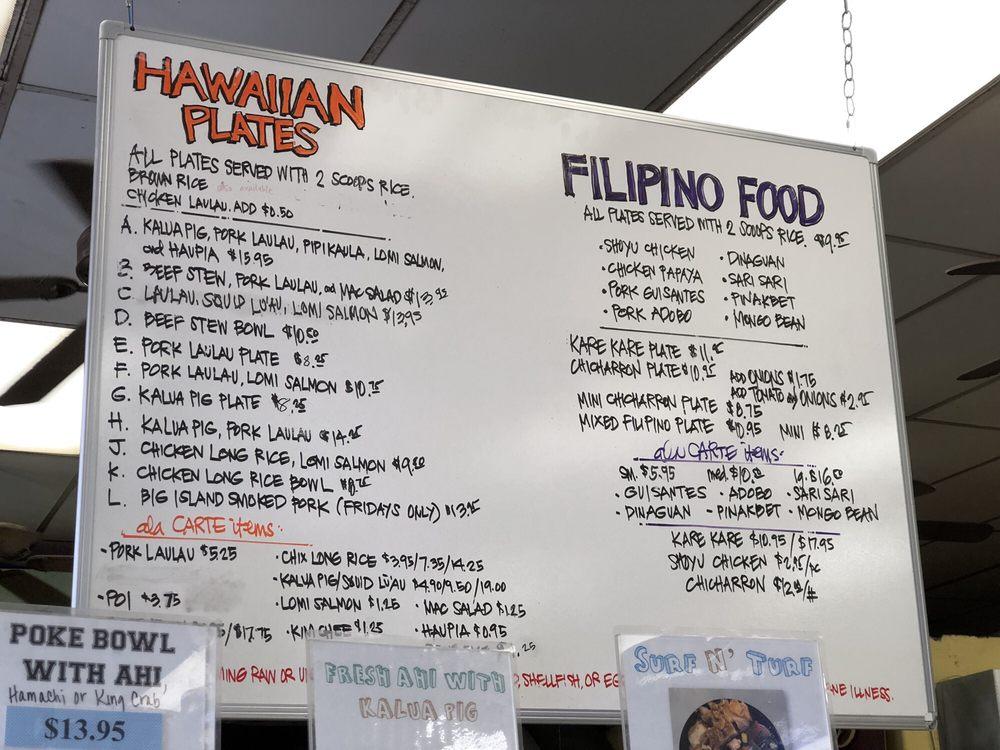 HAWAIIAN
PLATES
ALL PLATES SERVED WITH 2 SCOOPS RICE.
BROWN RICE also available
CHICKEN LAULAU, ADD $0.50
A. KALUA PIG, PORK LAULAU, PIPIKAULA, LOMI SALMON,
and HAUPIA $15.95
B. BEEF STEW, PORK LAULAU, and MAC SALAD
C. LAULAU, SQUID LU'AU, LOMI SALMON $13.95
D. BEEF STEW BOWL $10.50
E. PORK LAULAU PLATE
F. PORK LAULAU, LOMI SALMON
G. KALUA PIG PLATE
H. KALUA PIG, PORK LAULAU
J. CHICKEN LONG RICE, LOMI SALMON
K. CHICKEN LONG RICE BOWL
L. BIG ISLAND SMOKED PORK (FRIDAYS ONLY)
ala CARTE items:
• PORK LAULAU $5.25
• POI $3.75
/$17.75
• CHIX LONG RICE $3.95/7.35/14.25
• KALUA PIG/SQUID LU'AU $4.90/9.50/19.00
• LOMI SALMON $1.25 • MAC SALAD $1.25
• KIM CHEE $1.25 • HAUPIA $0.95
.25
FILIPINO FOOD
ALL PLATES SERVED WITH 2 SCOOPS RICE.
• SHOYU CHICKEN • DINAGUAN
• CHICKEN PAPAYA • SARI SARI
• PORK GUISANTES • PINAKBET
• PORK ADOBO • MONGO BEAN
KARE KARE PLATE
CHICHARRON PLATE
ADD ONIONS $1.75
ADD TOMATO and ONIONS
MINI CHICHARRON PLATE $8.75
MIXED FILIPINO PLATE $10.95 MINI
ala CARTE items:
SM. $5.95 med. $10.50 lg. $16.50
• GUISANTES • ADOBO • SARI SARI
• DINAGUAN - PINAKBET - MONGO BEAN
KARE KARE $10.95/$17.95
SHOYU CHICKEN
CHICHARRON
RAW OR SHELLFISH, OR ILLNESS.
POKE BOWL
WITH AHI
Hamachi or King Crab
$13.95
FRESH AHI WITH
KALUA PIG
SURF N' TURF